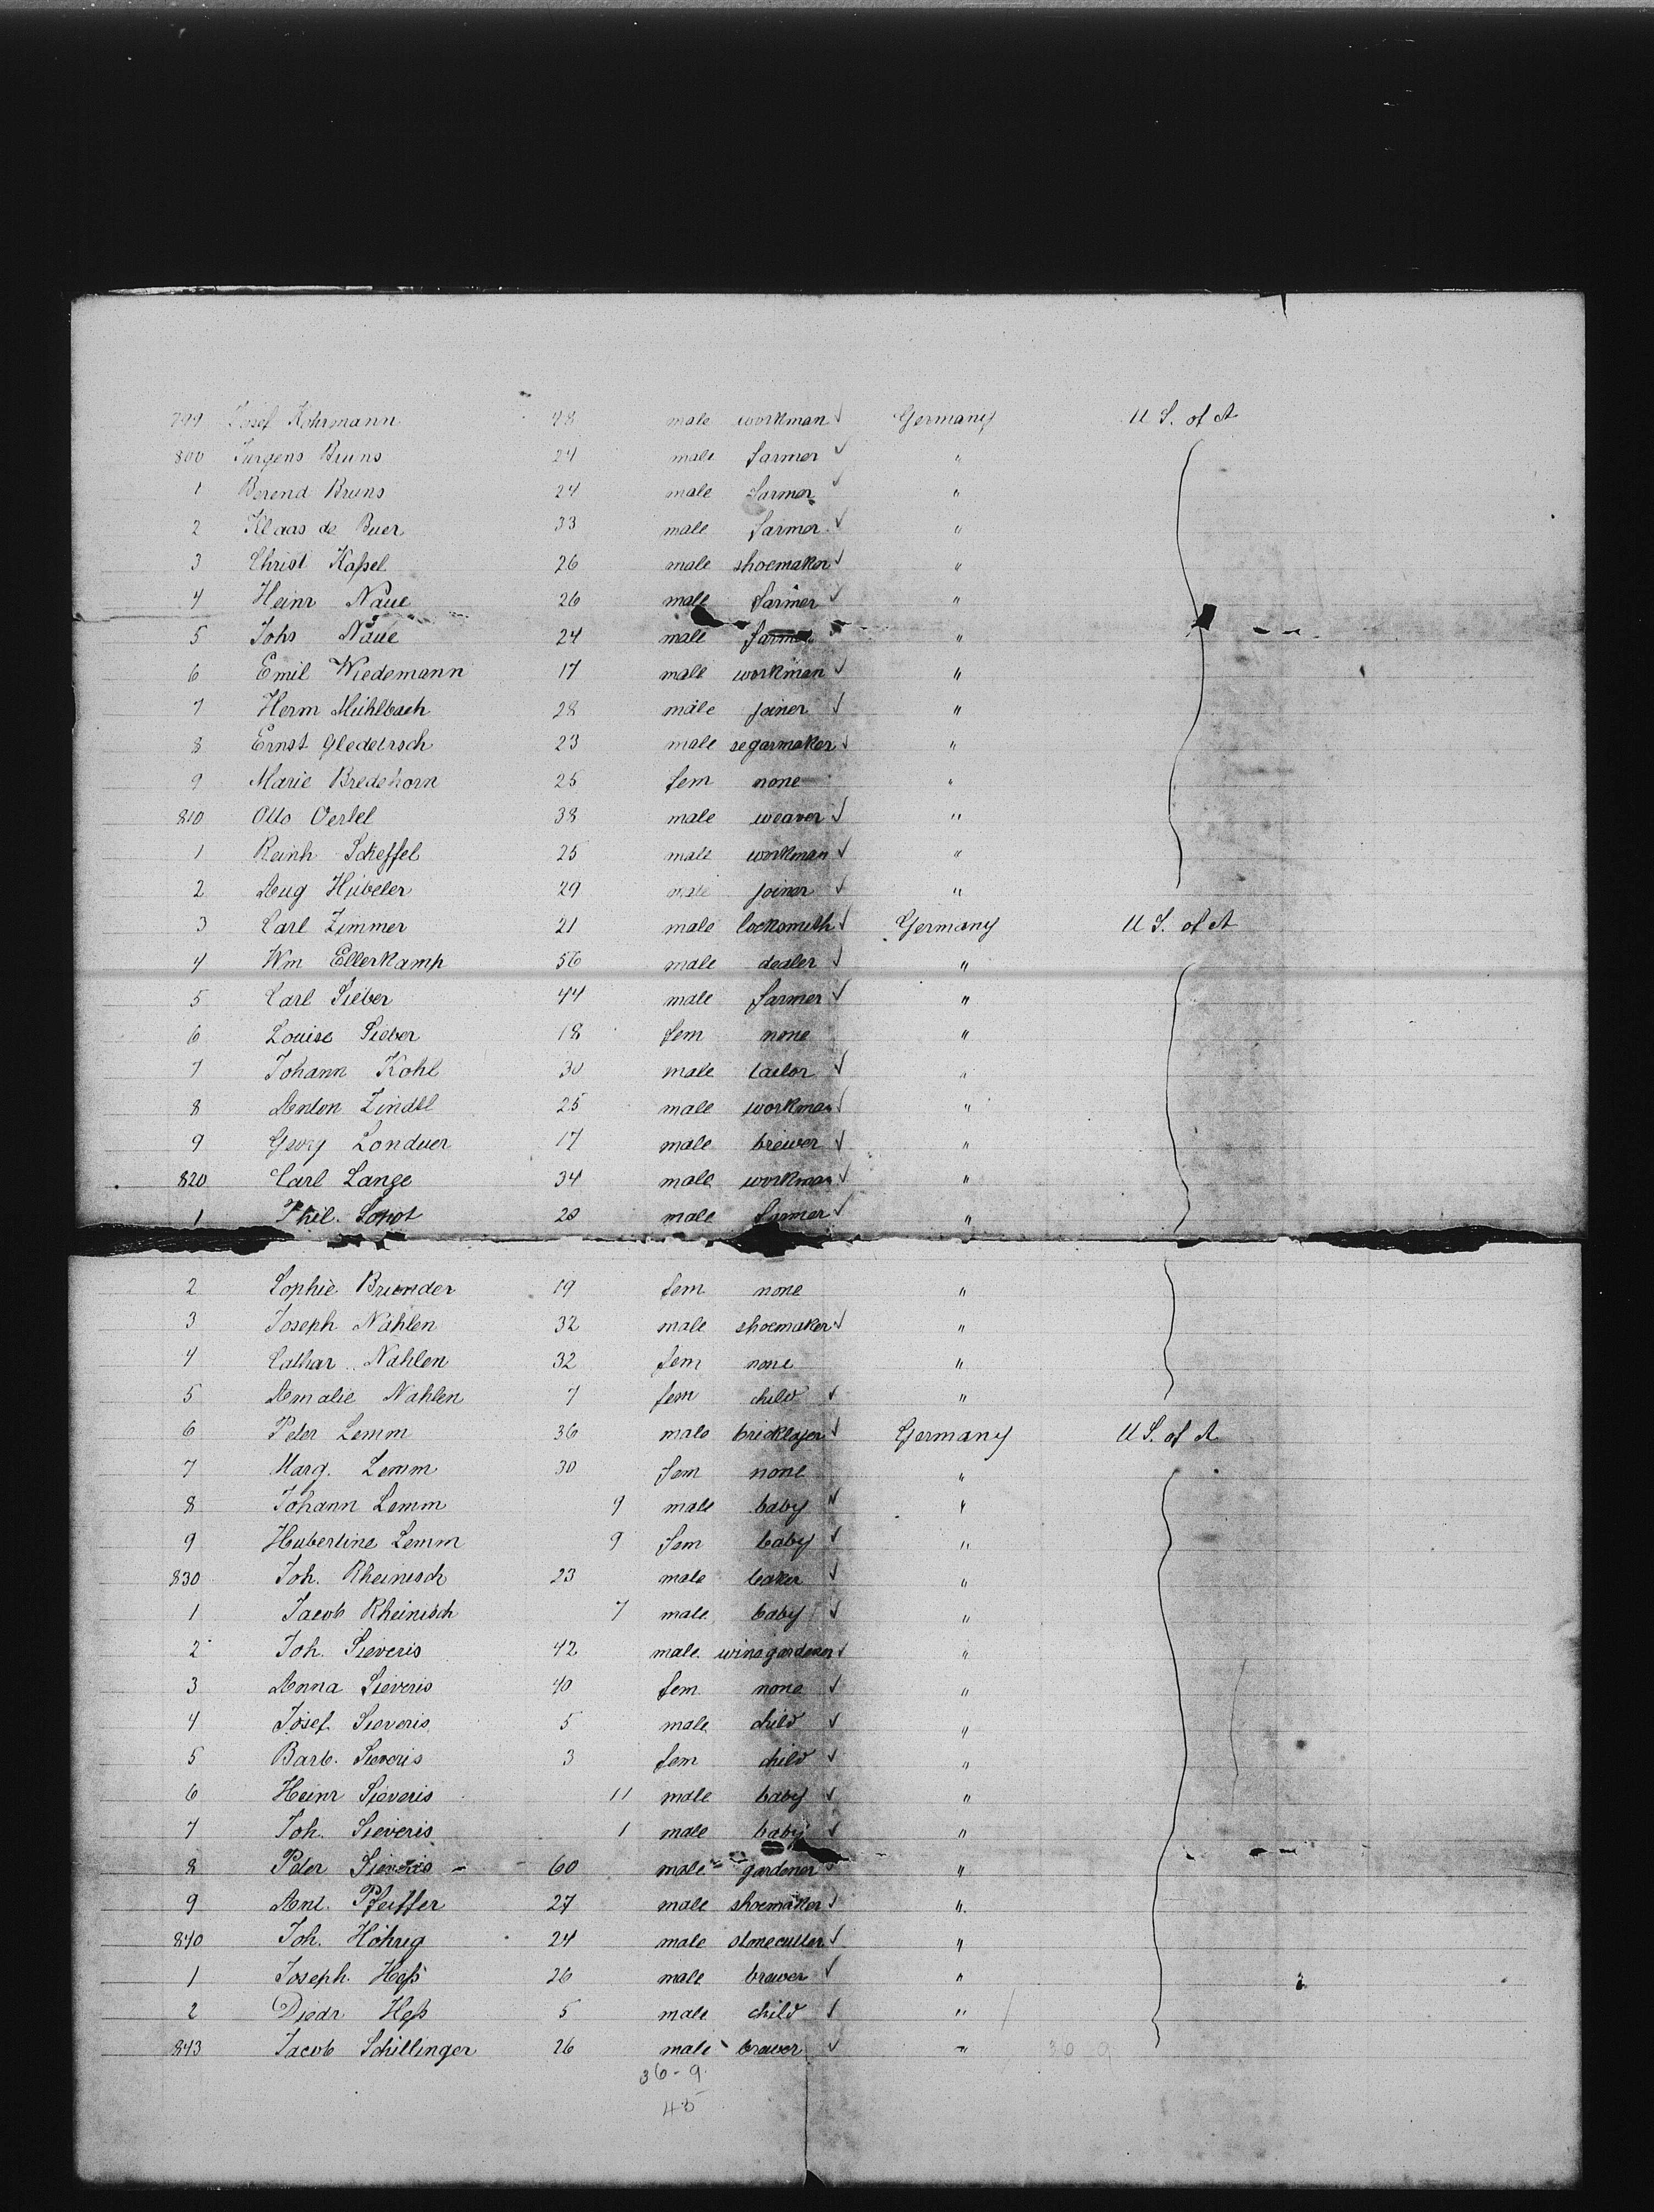 799 Josef Kohrmann 48 male workman Germany U S. of A
800 Jurgens Bruns 24 male farmer "
1 Berend Bruns 24 male farmer "
2 Klaas de Buer 33 male farmer "
3 Christ Kaßel 26 male shoemaker "
4 Heinr Naue 26 male farmer "
5 Johs Naue 24 male farmer "
6 Emil Wiedemann 17 male workman "
7 Herm Mühlbach 28 male joiner "
8 Ernst 23 male segarmaker "
9 Marie Bredehorn 25 fem none "
810 Otto Oertel 38 male weaver "
1 Reinh Scheffel 25 male workman "
2 Aug Hübeler 29 male joiner "
3 Carl Zimmer 21 male locksmith Germany U S. of A
4 Wm Ellerkamp 56 male dealer "
5 Carl Sieber 44 male farmer "
6 Louise Sieber 18 fem none "
7 Johann Kohl 30 male tailor "
8 Anton Zindel 25 male workman "
9 Georg 17 male brewer "
820 Carl Lange 34 male workman "
1 Phil. 28 male farmer "
2 Sophie 19 fem none "
3 Joseph Nahlen 32 male shoemaker "
4 Cathar Nahlen 32 fem none "
5 Amalie Nahlen 7 fem child "
6 Peter Lemm 36 male bricklayer Germany U S. of A
7 Marg. Lemm 30 fem none "
8 Johann Lemm 9 male baby "
9 Hubertine Lemm 9 fem baby "
830 Joh. Rheinisch 23 male baker "
1 Jacob Rheinisch 7 male baby "
2 Joh. Sieveris 42 male winegardener "
3 Anna Sieveris 40 fem none "
4 Josef Sieveris 5 male child "
5 Barb. Sieveris 3 fem child "
6 Heinr Sieveris 11 male baby "
7 Joh. Sieveris 1 male baby "
8 Peter Sieveris 60 male gardener "
9 Ant. Pfeiffer 27 male shoemaker "
840 Joh. Höhrig 24 male stonecutter "
1 Joseph Heß 26 male brewer "
2 Diedr Heß 5 male child "
843 Jacob Schillinger 26 male brewer " 30 9
36-9
45